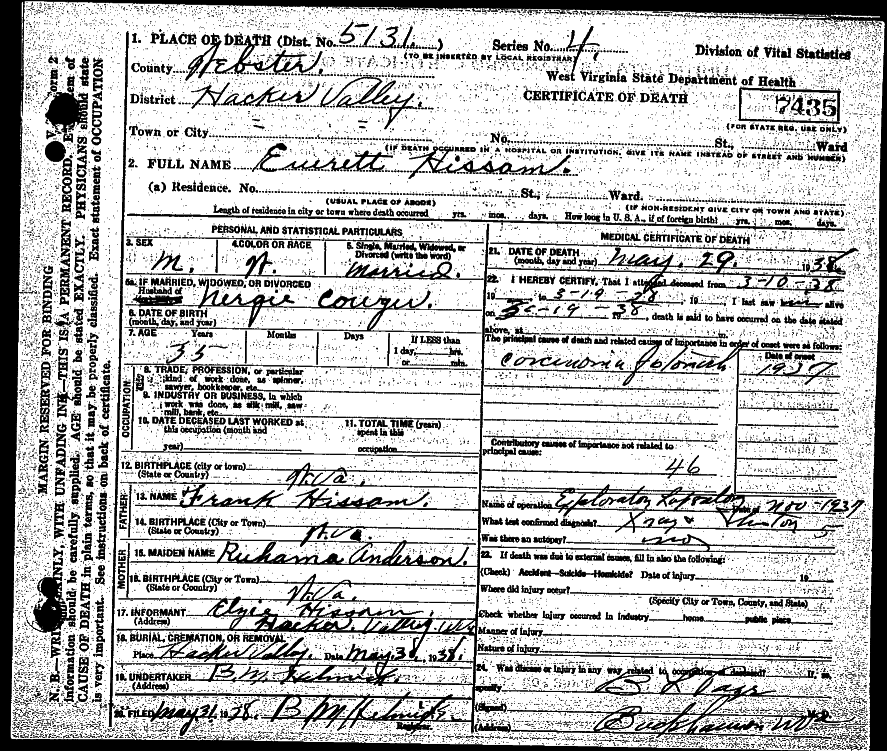 1. PLACE OF DEATH (Dist. No. 5131. ) Series No. 4. Division of Vital Statistics
(TO BE INSERTED BY LOCAL REGISTRAR)
County Webster. West Virginia State Department of Health
District Hacker Valley. CERTIFICATE OF DEATH 7435
(FOR STATE REG. USE ONLY)
Town or City No. St., Ward
(IF DEATH OCCURRED IN A HOSPITAL OR INSTITUTION, GIVE ITS NAME INSTEAD OF STREET AND NUMBER)
2. FULL NAME Everett Hissam.
(a) Residence. No. St., Ward.
(USUAL PLACE OF ABODE) (IF NON-RESIDENT GIVE CITY OR TOWN AND STATE)
Length of residence in city or town where death occurred yrs. mos. days. How long in U. S. A., if of foreign birth? yrs. mos. days.
PERSONAL AND STATISTICAL PARTICULARS
3. SEX 4. COLOR OR RACE 5. Single, Married, Widowed, or
Divorced (write the word)
M. W. Married.
5a. IF MARRIED, WIDOWED, OR DIVORCED
Husband of
6. DATE OF BIRTH
(month, day, and year)
7. AGE Years Months Days If LESS than
1 day, hrs.
or min.
35
OCCUPATION
8. TRADE, PROFESSION, or particular
kind of work done, as spinner,
sawyer, bookkeeper, etc.
9. INDUSTRY OR BUSINESS, in which
work was done, as silk mill, saw
mill, bank, etc.
10. DATE DECEASED LAST WORKED at
this occupation (month and
year)
11. TOTAL TIME (years)
spent in this
occupation
12. BIRTHPLACE (city or town)
(State or Country) W.Va.
FATHER
13. NAME Frank Hissam.
14. BIRTHPLACE (City or Town)
(State or Country) W.Va.
MOTHER
15. MAIDEN NAME Ruhama Anderson.
16. BIRTHPLACE (City or Town)
(State or Country) W.Va.
17. INFORMANT Elzie Hissam.
(Address) Hacker Valley, W.Va
18. BURIAL, CREMATION, OR REMOVAL
Place Hacker Valley. Date May 30, 1938.
19. UNDERTAKER B.M. Helmick.
(Address)
20. FILED May 31, 1938. B M Helmick.
Registrar
MEDICAL CERTIFICATE OF DEATH
21. DATE OF DEATH
(month, day and year) May. 29. 1938
22. I HEREBY CERTIFY, That I attended deceased from 3-10-38
19 to 3-19-38, 19 , I last saw him alive
on 3-19-38 19 , death is said to have occurred on the date stated
above, at m.
The principal cause of death and related causes of importance in order of onset were as follows:
Date of onset
Carcinoma of stomach 1937
Contributory causes of importance not related to
principal cause:
46
Name of operation Exploratory Date of Nov-1937
What test confirmed diagnosis? Xray &
Was there an autopsy? no
23. If death was due to external causes, fill in also the following:
(Check) Accident—Suicide—Homicide? Date of injury 19
Where did injury occur?
(Specify City or Town, County, and State)
Check whether injury occurred in industry home public place
Manner of injury
Nature of injury
24. Was disease or injury in any way related to occupation of deceased? If so
specify
(Signed)
(Address) Buckhannon W Va
MARGIN RESERVED FOR BINDING
N. B.—WRITE PLAINLY, WITH UNFADING INK—THIS IS A PERMANENT RECORD. Every item of
information should be carefully supplied. AGE should be stated EXACTLY. PHYSICIANS should state
CAUSE OF DEATH in plain terms, so that it may be properly classified. Exact statement of OCCUPATION
is very important. See instructions on back of certificate.